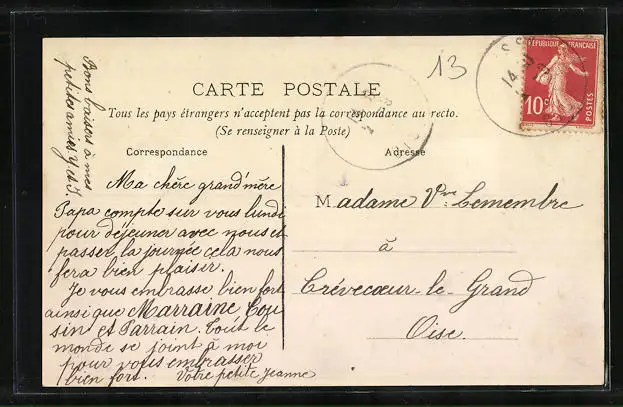 Bons baisers à mes
petites amies Y et J
13
RÉPUBLIQUE FRANÇAISE
10c
POSTES
CARTE POSTALE
Tous les pays étrangers n'acceptent pas la correspondance au recto.
(Se renseigner à la Poste)
Correspondance
Ma chère grand'mère
Papa compte sur vous lundi
pour déjeuner avec nous et
passer la journée cela nous
fera bien plaisir.
Je vous embrasse bien fort
ainsi que Marraine, Cou
sin et Parrain. Tout le
monde se joint à moi
pour vous embrasser
bien fort. Votre petite Jeanne
Adresse
Madame Vve Lemembre
à
Crévecœur-le-Grand
Oise.